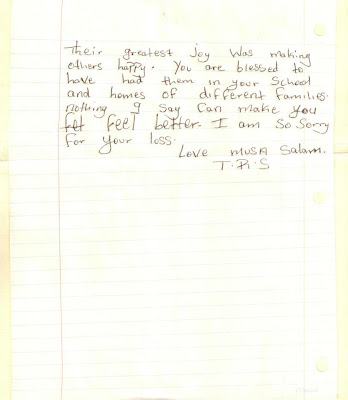 Their greatest joy was making
others happy. You are blessed to
have had them in your School
and homes of different families.
nothing I say can make you
fet feel better. I am so sorry
for your loss.
Love MUSA Salam.
T.P.S